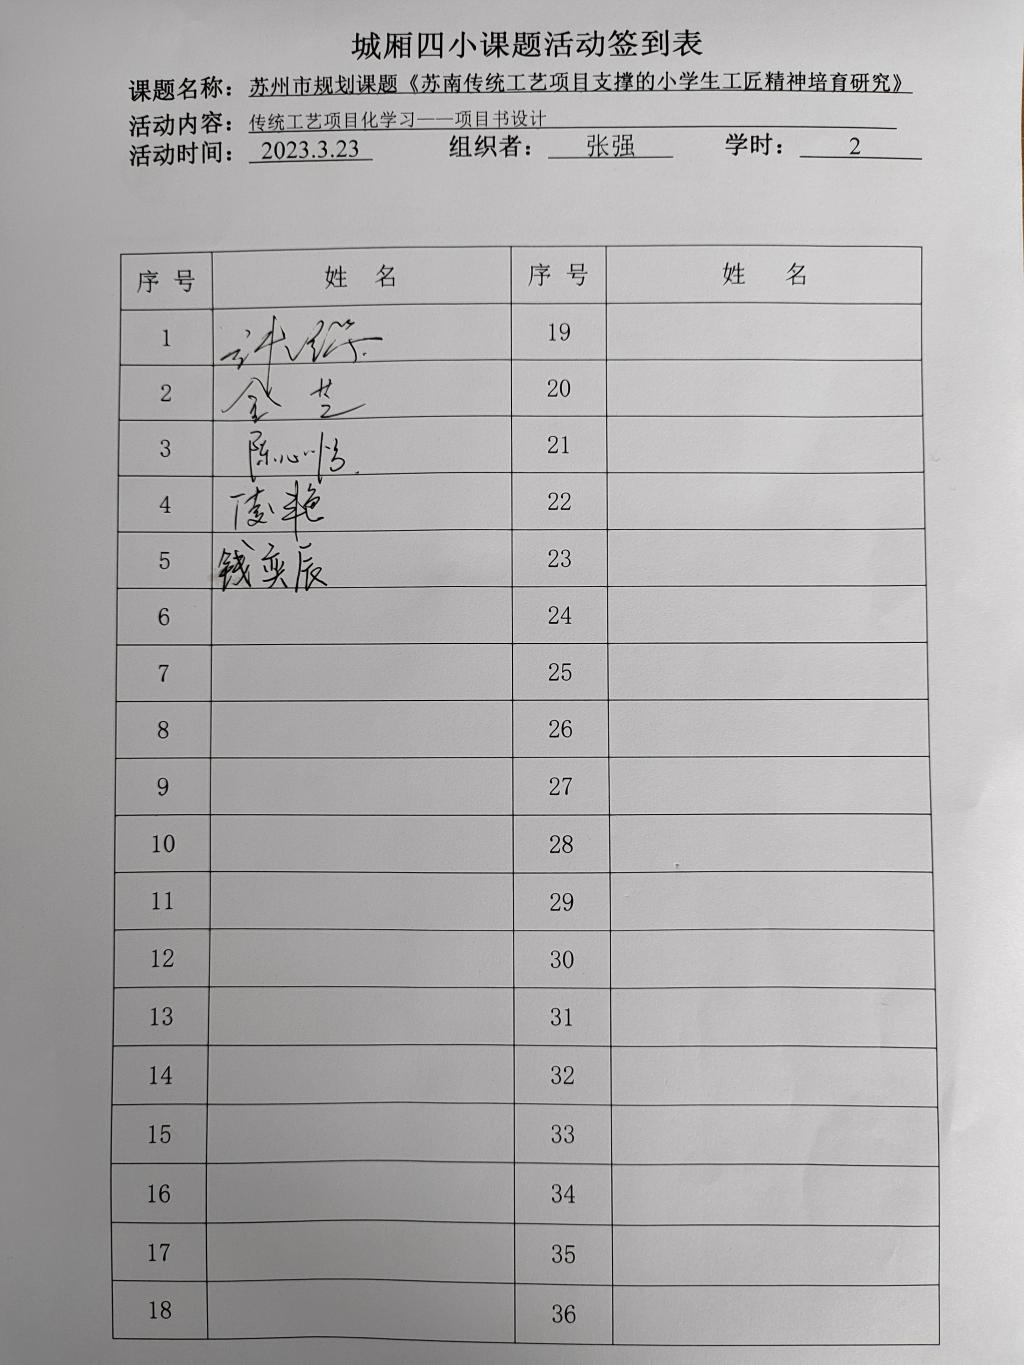 城厢四小课题活动签到表
课题名称：苏州市规划课题《苏南传统工艺项目支撑的小学生工匠精神培育研究》
活动内容：传统工艺项目化学习——项目书设计
活动时间：2023.3.23 组织者：张强 学时：2
序号 姓名 序号 姓名
1 19
2 金芝 20
3 陈心怡 21
4 凌艳 22
5 钱奕辰 23
6 24
7 25
8 26
9 27
10 28
11 29
12 30
13 31
14 32
15 33
16 34
17 35
18 36